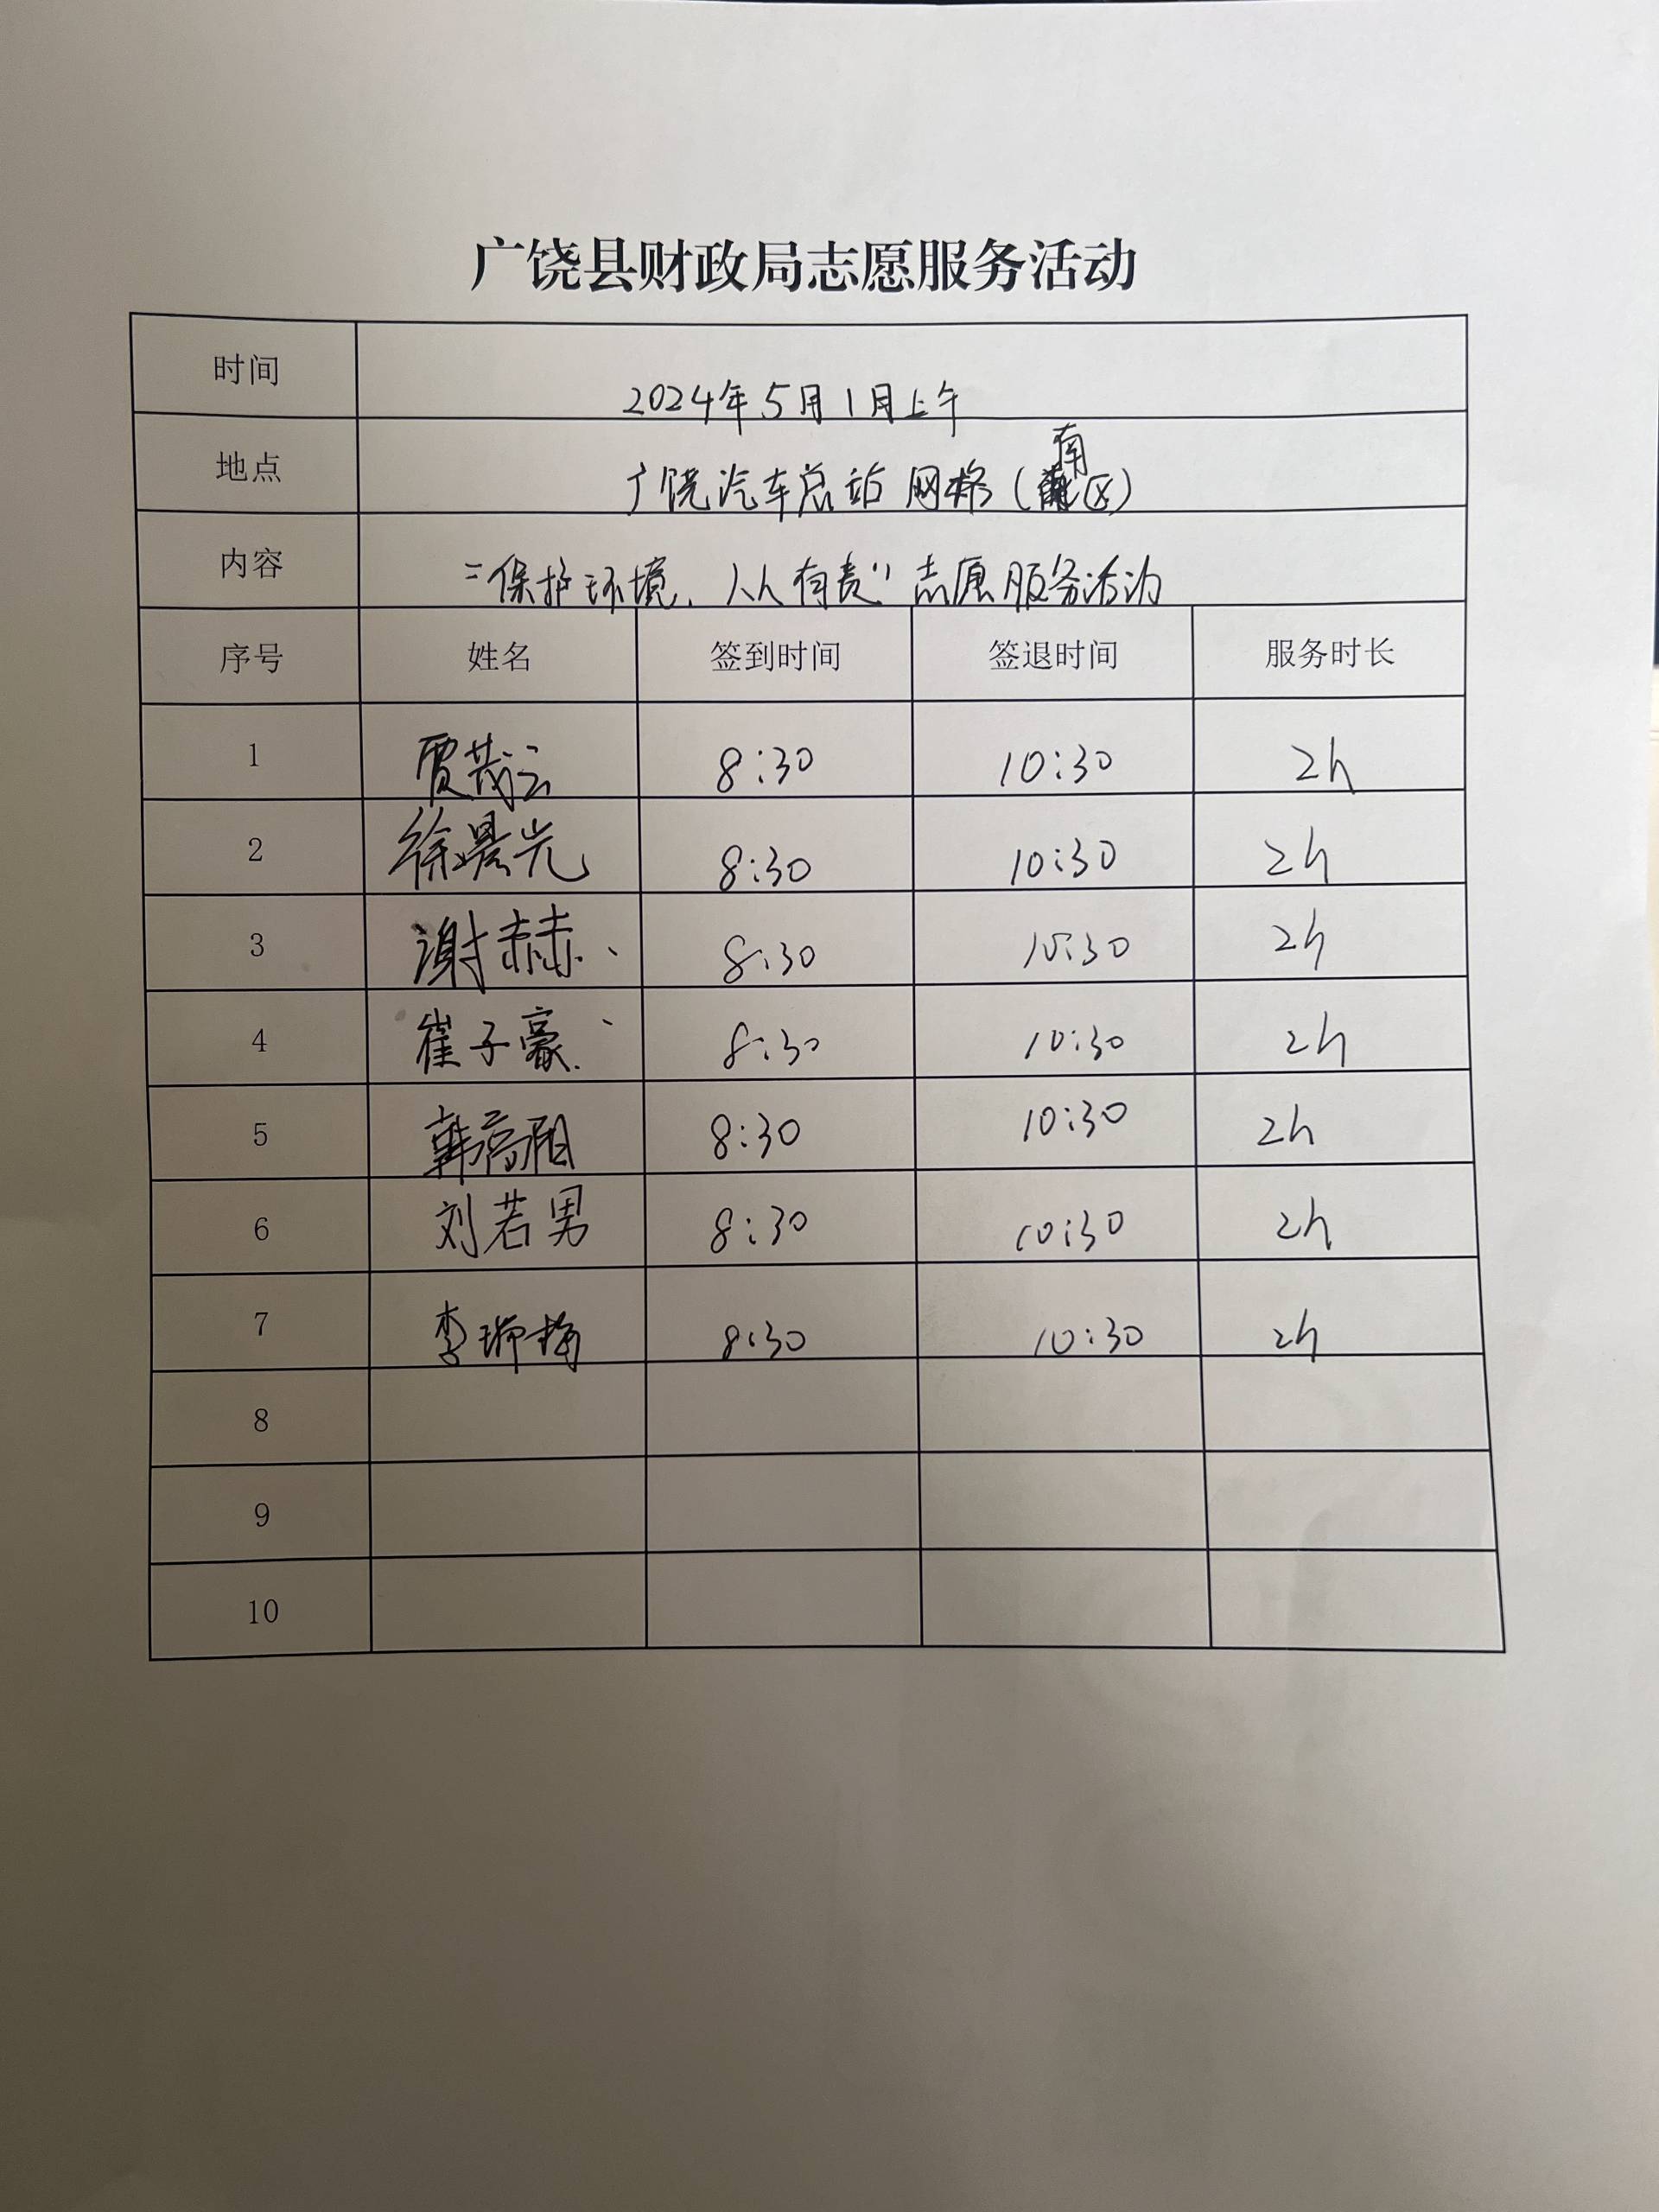 广饶县财政局志愿服务活动
时间 2024年5月1日上午
地点 广饶汽车总站网格(南区)
内容 "保护环境、人人有责"志愿服务活动
序号 姓名 签到时间 签退时间 服务时长
1 贾茂云 8:30 10:30 2h
2 徐晨光 8:30 10:30 2h
3 谢赫 8:30 10:30 2h
4 崔子豪 8:30 10:30 2h
5 韩高阳 8:30 10:30 2h
6 刘若男 8:30 10:30 2h
7 李瑞梅 8:30 10:30 2h
8
9
10